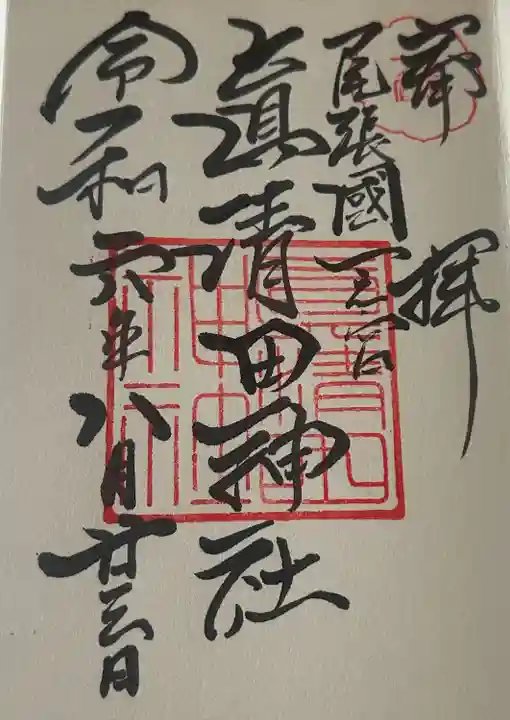 奉拝
尾張國一之宮
真清田神社
令和六年八月廿三日